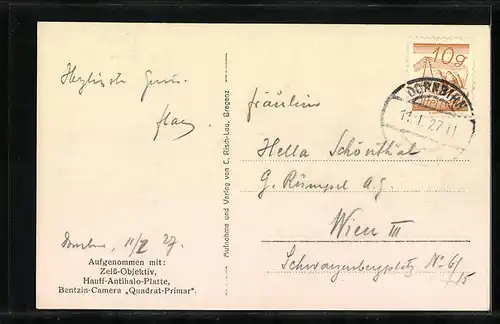 Herzlichste Grüsse
Dornbirn, 11/I 27.
Aufgenommen mit:
Zeiß-Objektiv,
Hauff-Antihalo-Platte,
Bentzin-Camera „Quadrat-Primar".
Aufnahme und Verlag von C. Risch-Lau, Bregenz
10g
DORNBIRN
11.I.27.11
Fräulein
Hella Schönthal
G. Rümpel A.G.
Wien III
Schwarzenbergplatz No 6/15